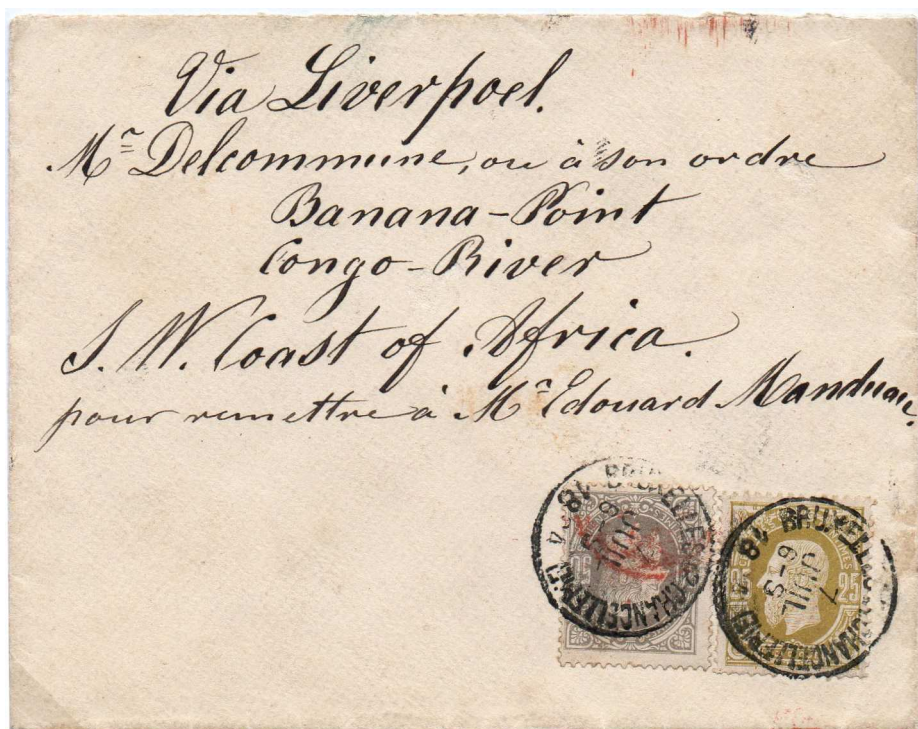 Via Liverpoel.
Mr Delcommune, ou à son ordre
Banana-Point
Congo-River
S. W. Coast of Africa.
pour remettre à Mr Edouard Manduau.
BRUXELLES (CHANCELLERIE)
7 JUIL
6-S
1884
50
BRUXELLES (CHANCELLERIE)
7 JUIL
6-S
1884
25 25